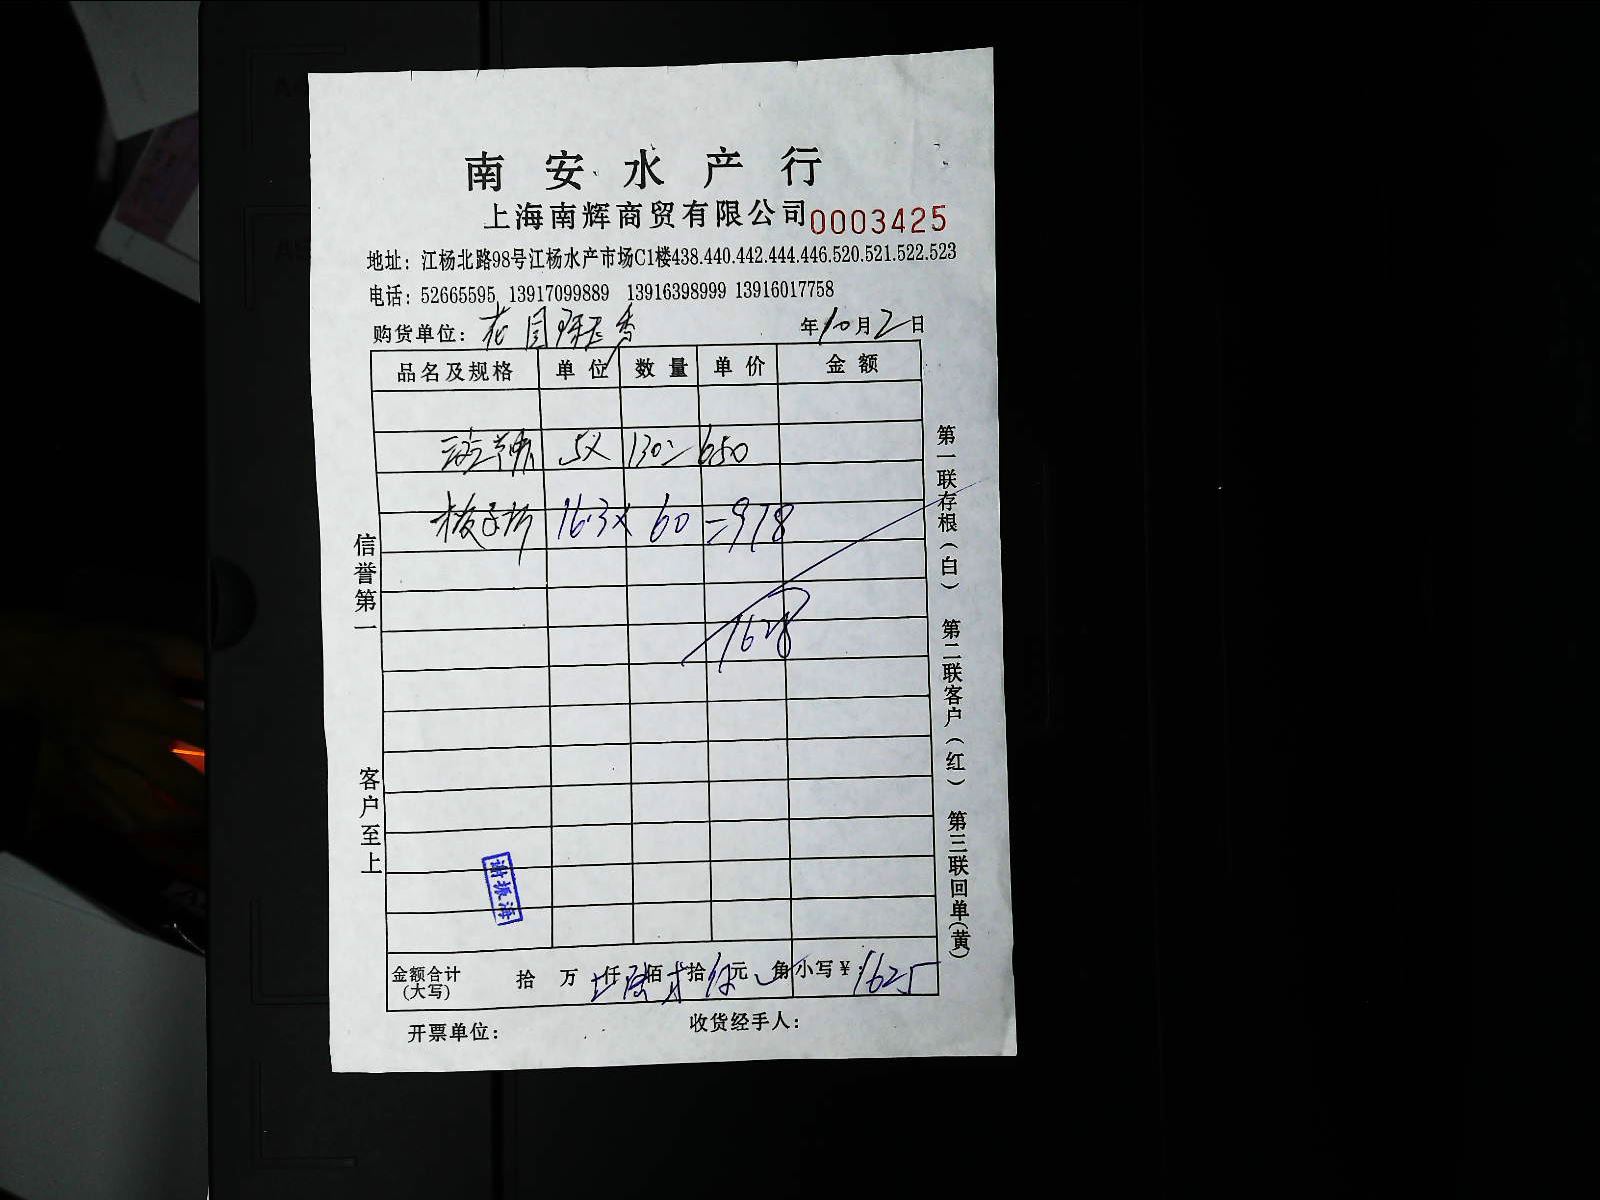 南安水产行
上海南辉商贸有限公司0003425
地址：江杨北路98号江杨水产市场C1楼438.440.442.444.446.520.521.522.523
电话：52665595 13917099889 13916398999 13916017758
购货单位：花园 年10月2日
品名及规格 单位 数量 单价 金额
5× 130=650
16.3× 60 =978
1628
信誉第一
客户至上
第一联存根（白） 第二联客户（红） 第三联回单（黄）
谢振海
金额合计（大写） 拾 万 仟 佰 拾 元 角 小写￥：1625
开票单位： 收货经手人：